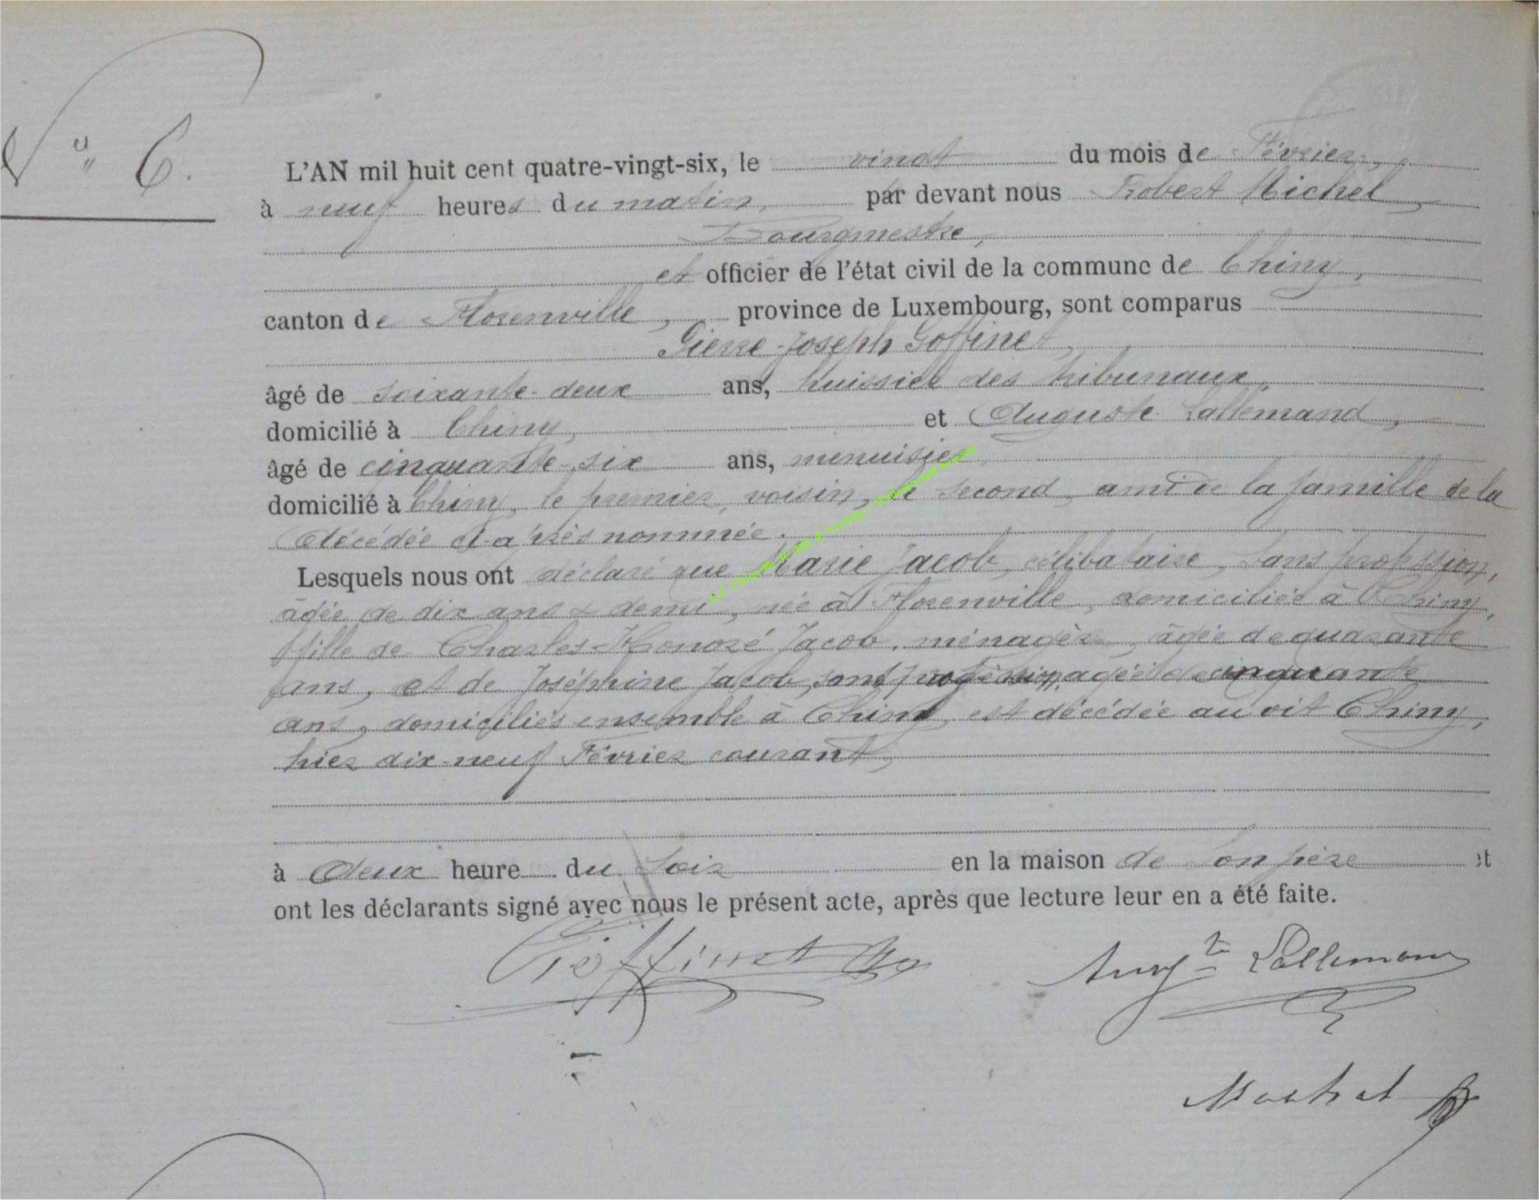 N° 6.
L'AN mil huit cent quatre-vingt-six, le vingt du mois de Février,
à neuf heures du matin, par devant nous Robert Michel,
Bourgmestre,
et officier de l'état civil de la commune de Chiny,
canton de Florenville, province de Luxembourg, sont comparus
Pierre-Joseph Goffinet,
âgé de soixante-deux ans, huissier des tribunaux,
domicilié à Chiny, et Auguste Lallemand,
âgé de cinquante-six ans, menuisier,
domicilié à Chiny, le premier, voisin, le second, ami de la famille de la
décédée ci-après nommée.
Lesquels nous ont déclaré que Marie Jacob, célibataire, sans profession,
âgée de dix ans & demi, née à Florenville, domiciliée à Chiny,
fille de Charles-Honoré Jacob, ménagère, âgée de quarante
ans, et de Joséphine Jacob, sans profession, agée de cinquante
ans, domiciliés ensemble à Chiny, est décédée au dit Chiny,
hier dix-neuf Février courant,
à deux heure du soir en la maison de son père et
ont les déclarants signé avec nous le présent acte, après que lecture leur en a été faite.
Goffinet
Aug^te Lallemand